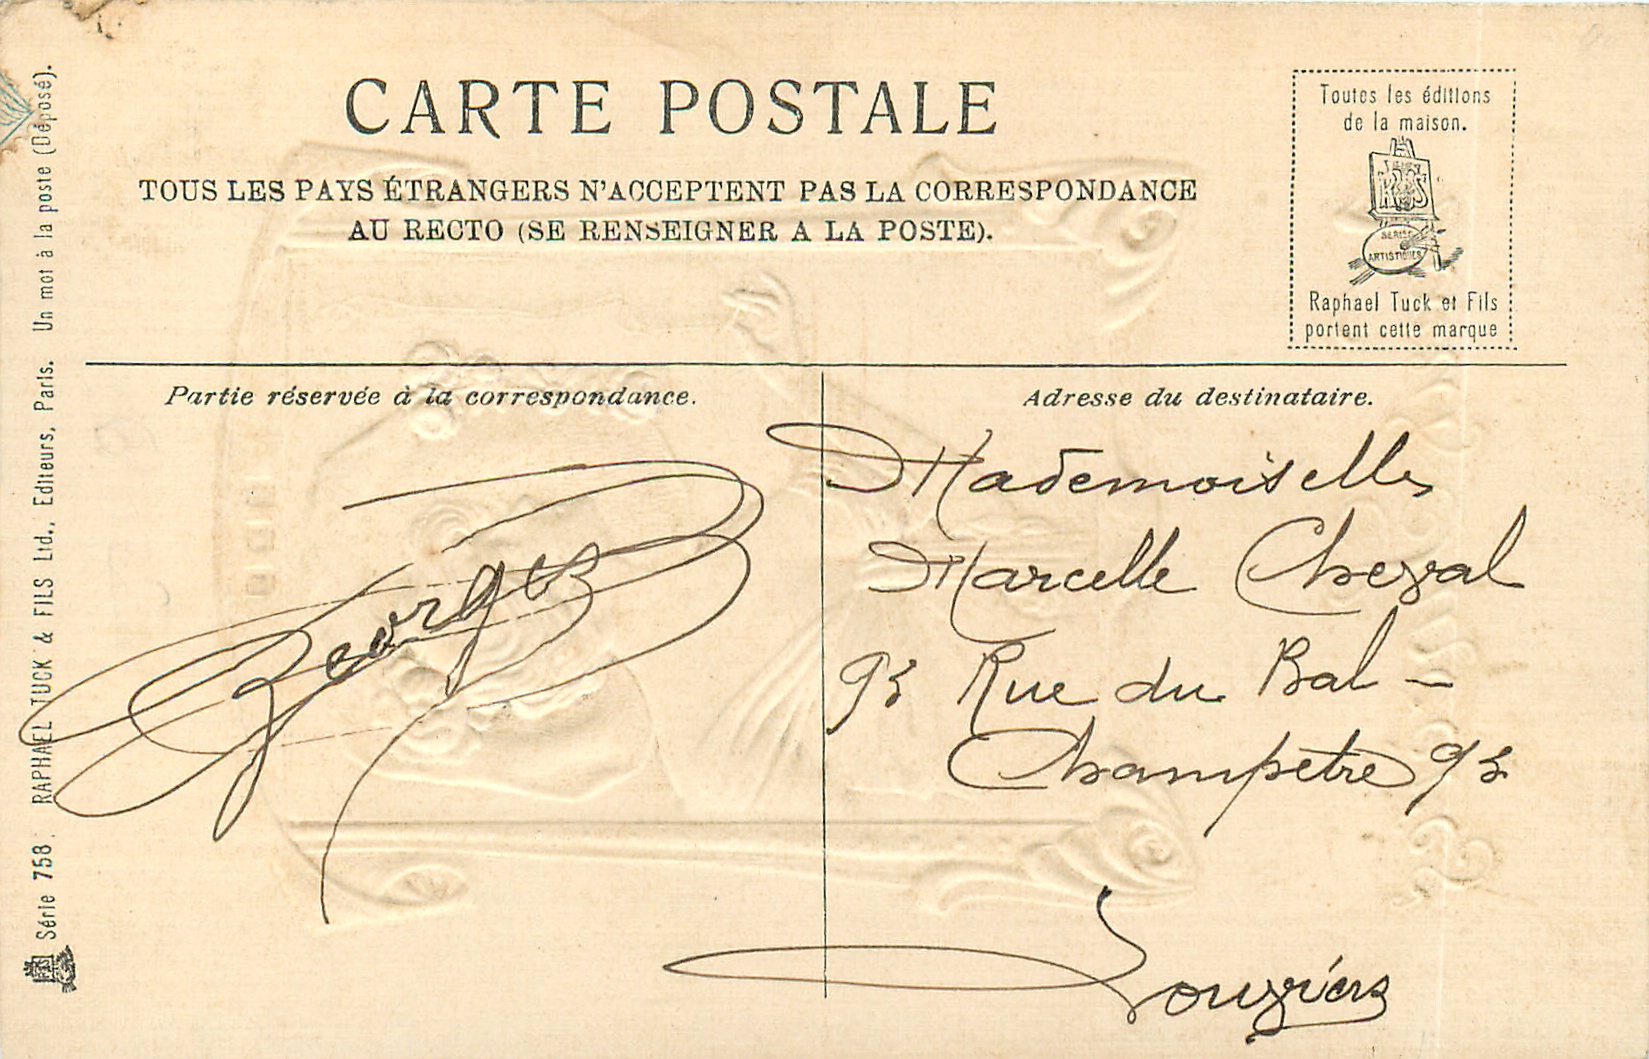 CARTE POSTALE
TOUS LES PAYS ÉTRANGERS N'ACCEPTENT PAS LA CORRESPONDANCE
AU RECTO (SE RENSEIGNER A LA POSTE).
Toutes les éditions
de la maison.
SÉRIE
ARTISTIQUES
Raphael Tuck et Fils
portent cette marque
Partie réservée à la correspondance.
Georges
Adresse du destinataire.
Mademoiselle
Marcelle Cheval
93 Rue du Bal –
Champetre 93
Louviers
Série 758. RAPHAEL TUCK & FILS Ltd., Editeurs, Paris. Un mot à la poste (Déposé).